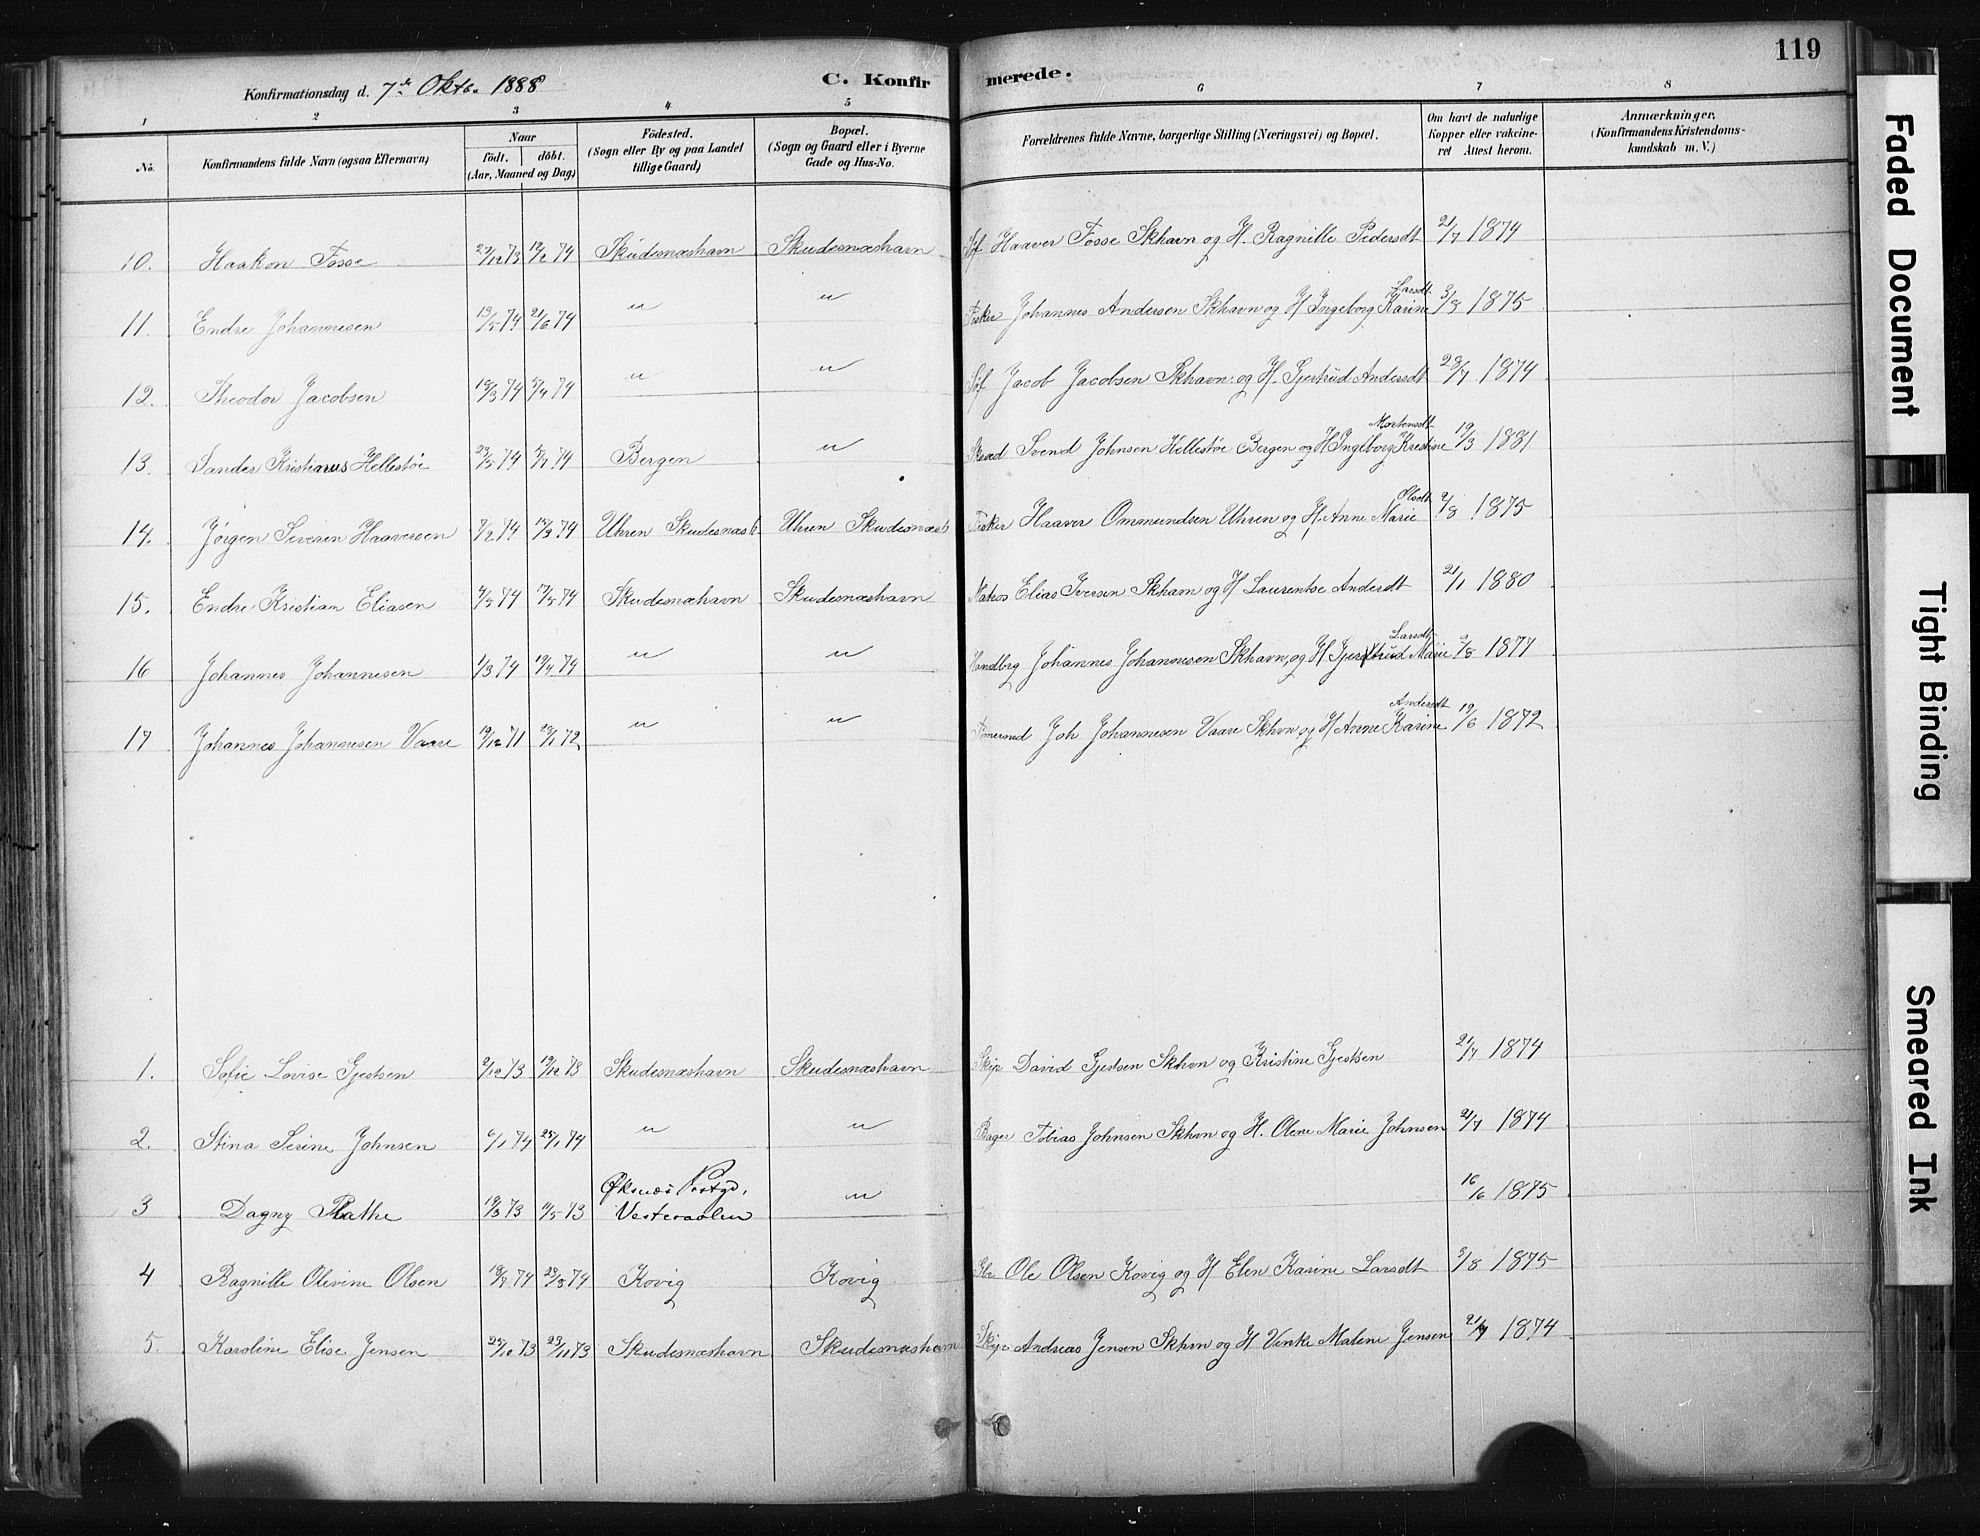 119
Konfirmationsdag d. 7de Oktb. 1888
C. Konfirmerede.
1 2 3 4 5 6 7 8
No. Konfirmandens fulde Navn (ogsaa Efternavn) Naar født. døbt. (Aar, Maaned og Dag) Födested. (Sogn eller By og paa Landet tillige Gaard) Bopæl. (Sogn og Gaard eller i Byerne Gade og Hus-No. Forældrenes fulde Navne, borgerlige Stilling (Næringsvei) og Bopæl. Om havt de naturlige Kopper eller vaccineret Attest herom. Anmærkninger. (Konfirmandens Kristendomskundskab m. V.)
10. Haakon Fosse 27/12 73 12/2 74 Skudesnæshavn Skudesnæshavn Søf Haaver Fosse Skhavn og H. Ragnille Pedersdt 21/7 1874
11. Endre Johannesen 13/5 74 21/6 74 " " Fisker Johannes Andersen Skhavn og H Ingeborg Karine Larsdt 3/8 1875
12. Theodor Jacobsen 15/3 74 5/4 74 " " Søf Jacob Jacobsen Skhavn og H. Gjertrud Andersdt 28/7 1874
13. Sander Kristianus Hellestøe 23/5 74 5/7 74 Bergen " Svend Johnsen Hellestøe Bergen og H Ingeborg Kristine Mortensdt 19/3 1881
14. Jørgen Severin Haaversen 7/2 74 15/3 74 Uhren Skudesnæs Uhren Skudesnæs Fisker Haaver Ommundsen Uhren og H. Anne Marie Olsdt 2/8 1875
15. Endre Kristian Eliasen 4/5 74 17/5 74 Skudesnæhavn Skudesnæshavn Elias Iversen Skhavn og H Laurentse Andersdt 21/1 1880
16 Johannes Johannesen 1/3 74 19/4 74 " " Handbrg Johannes Johannesen Skhavn, og H Gjertrud Marie Larsdt 2/8 1877
17 Johannes Johannesen Vaare 19/12 71 28/1 72 " " Joh Johannesen Vaare Skhvn og H Anne Karine Andersdt 19/6 1872
1. Sofie Lovise Gjestsen 2/12 73 19/12 73 Skudesnæshavn Skudesnæshavn Skip David Gjestsen Skhvn og Kristine Gjestsen 21/7 1874
2. Stina Serine Johnsen 6/1 74 25/1 74 " " Bager Tobias Johnsen Skhvn og H. Olene Marie Johnsen 21/7 1874
3 Dagny Rathe 19/3 73 11/5 73 Øksnæs Prstgd. Vesteraalen " 16/6 1875
4 Ragnille Olivine Olsen 74 74 Kovig Kovig Gbr Ole Olsen Kovig og H Elen Karine Larsdt 3/8 1875
5. Karoline Elise Jensen 25/10 73 23/11 73 Skudesnæshavn Skudesnæshavn Skip Andreas Jensen Skhvn og H Venke Malene Jensen 21/7 1874
Faded Document
Tight Binding
Smeared Ink